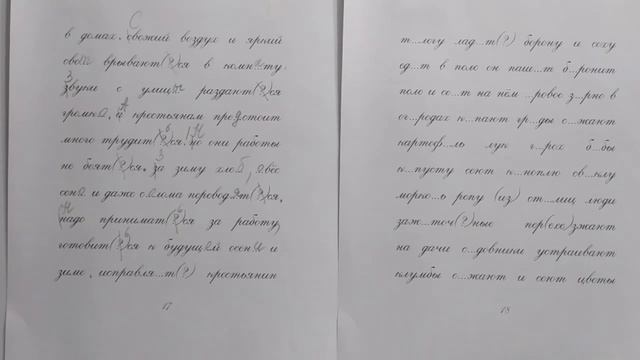 в домах. Свежий воздух и яркий
свет врывают(?)ся в комнату.
Звуки с улицы раздают(?)ся
громко. А крестьянам предстоит
много трудит(ь)ся. Но они работы
не боят(?)ся. За зиму хлеб, овёс
сено и даже солома перевод ят(?)ся.
Надо принимат(ь)ся за работу,
готовит(ь)ся к будущей осени и
зиме, исправля...т(?) крестьянин
17
т...логу лад...т(?) борону и соху
ед...т в поле он паш...т б...ронит
поле и се...т на нём ...ровое з...рно в
ог...родах к...пают гр...ды с...жают
картоф...ль лук г...рох б...бы
к...пусту сеют к...ноплю св...клу
морко...ь репу (из) от...лиц люди
заж...точ(?)ные пер(ехо)зжают
на дачи с...довники устраивают
клумбы с...жают и сеют цветы
18